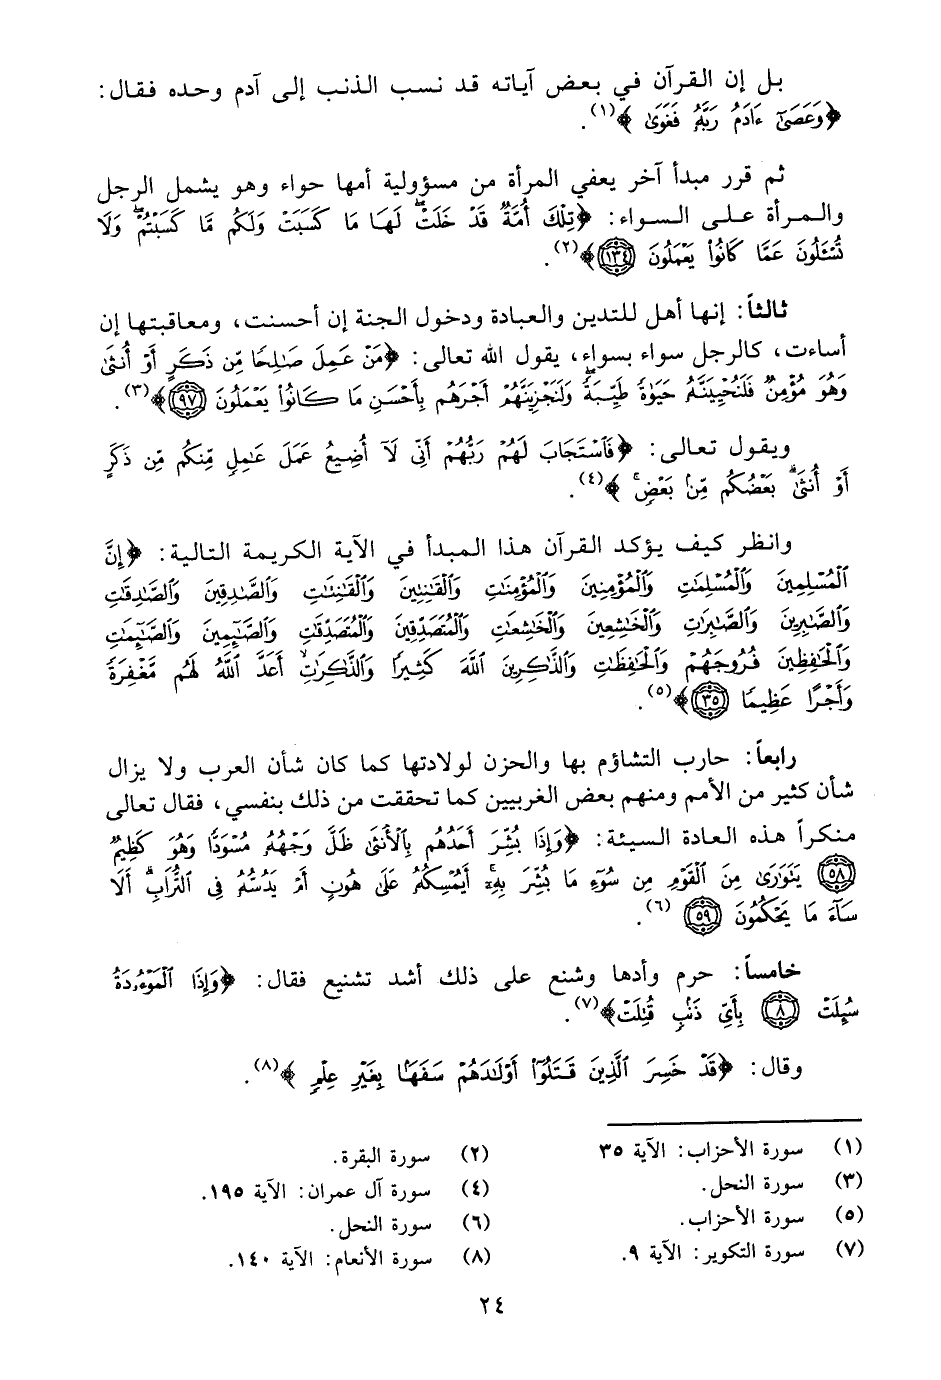 بل إن القرآن في بعض آياته قد نسب الذنب إلى آدم وحده فقال:
﴿وَعَصَىٰٓ ءَادَمُ رَبَّهُۥ فَغَوَىٰ﴾(١).
ثم قرر مبدأ آخر يعفي المرأة من مسؤولية أمها حواء وهو يشمل الرجل
والمرأة على السواء: ﴿تِلْكَ أُمَّةٌ قَدْ خَلَتْۖ لَهَا مَا كَسَبَتْ وَلَكُم مَّا كَسَبْتُمْۖ وَلَا
تُسْـَٔلُونَ عَمَّا كَانُوا۟ يَعْمَلُونَ ١٣٤﴾(٢).
ثالثاً: إنها أهل للتدين والعبادة ودخول الجنة إن أحسنت، ومعاقبتها إن
أساءت، كالرجل سواء بسواء، يقول الله تعالى: ﴿مَنْ عَمِلَ صَـٰلِحًا مِّن ذَكَرٍ أَوْ أُنثَىٰ
وَهُوَ مُؤْمِنٌ فَلَنُحْيِيَنَّهُۥ حَيَوٰةً طَيِّبَةًۖ وَلَنَجْزِيَنَّهُمْ أَجْرَهُم بِأَحْسَنِ مَا كَانُوا۟ يَعْمَلُونَ ٩٧﴾(٣).
ويقول تعالى: ﴿فَٱسْتَجَابَ لَهُمْ رَبُّهُمْ أَنِّى لَآ أُضِيعُ عَمَلَ عَـٰمِلٍ مِّنكُم مِّن ذَكَرٍ
أَوْ أُنثَىٰۖ بَعْضُكُم مِّنۢ بَعْضٍ﴾(٤).
وانظر كيف يؤكد القرآن هذا المبدأ في الآية الكريمة التالية: ﴿إِنَّ
ٱلْمُسْلِمِينَ وَٱلْمُسْلِمَـٰتِ وَٱلْمُؤْمِنِينَ وَٱلْمُؤْمِنَـٰتِ وَٱلْقَـٰنِتِينَ وَٱلْقَـٰنِتَـٰتِ وَٱلصَّـٰدِقِينَ وَٱلصَّـٰدِقَـٰتِ
وَٱلصَّـٰبِرِينَ وَٱلصَّـٰبِرَٰتِ وَٱلْخَـٰشِعِينَ وَٱلْخَـٰشِعَـٰتِ وَٱلْمُتَصَدِّقِينَ وَٱلْمُتَصَدِّقَـٰتِ وَٱلصَّـٰٓئِمِينَ وَٱلصَّـٰٓئِمَـٰتِ
وَٱلْحَـٰفِظِينَ فُرُوجَهُمْ وَٱلْحَـٰفِظَـٰتِ وَٱلذَّٰكِرِينَ ٱللَّهَ كَثِيرًا وَٱلذَّٰكِرَٰتِ أَعَدَّ ٱللَّهُ لَهُم مَّغْفِرَةً
وَأَجْرًا عَظِيمًا ٣٥﴾(٥).
رابعاً: حارب التشاؤم بها والحزن لولادتها كما كان شأن العرب ولا يزال
شأن كثير من الأمم ومنهم بعض الغربيين كما تحققت من ذلك بنفسي، فقال تعالى
منكراً هذه العادة السيئة: ﴿وَإِذَا بُشِّرَ أَحَدُهُم بِٱلْأُنثَىٰ ظَلَّ وَجْهُهُۥ مُسْوَدًّا وَهُوَ كَظِيمٌ
٥٨ يَتَوَٰرَىٰ مِنَ ٱلْقَوْمِ مِن سُوٓءِ مَا بُشِّرَ بِهِۦٓۚ أَيُمْسِكُهُۥ عَلَىٰ هُونٍ أَمْ يَدُسُّهُۥ فِى ٱلتُّرَابِۗ أَلَا
سَآءَ مَا يَحْكُمُونَ ٥٩ (٦).
خامساً: حرم وأدها وشنع على ذلك أشد تشنيع فقال: ﴿وَإِذَا ٱلْمَوْءُۥدَةُ
سُئِلَتْ ٨ بِأَىِّ ذَنۢبٍ قُتِلَتْ﴾(٧).
وقال: ﴿قَدْ خَسِرَ ٱلَّذِينَ قَتَلُوٓا۟ أَوْلَـٰدَهُمْ سَفَهًۢا بِغَيْرِ عِلْمٍ﴾(٨).
(١) سورة الأحزاب: الآية ٣٥
(٢) سورة البقرة.
(٣) سورة النحل.
(٤) سورة آل عمران: الآية ١٩٥.
(٥) سورة الأحزاب.
(٦) سورة النحل.
(٧) سورة التكوير: الآية ٩.
(٨) سورة الأنعام: الآية ١٤٠.
٢٤